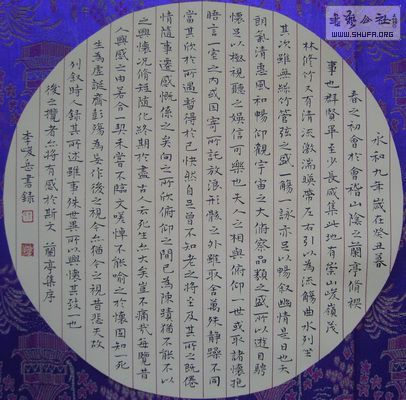 永和九年歲在癸丑暮
春之初會於會稽山陰之蘭亭修禊
事也群賢畢至少長咸集此地有崇山峻嶺茂
林修竹又有清流激湍暎帶左右引以為流觴曲水列坐
其次雖無絲竹管弦之盛一觴一詠亦足以暢敘幽情是日也天
朗氣清惠風和暢仰觀宇宙之大俯察品類之盛所以遊目騁
懷足以極視聽之娛信可樂也夫人之相與俯仰一世或取諸懷抱
晤言一室之內或因寄所託放浪形骸之外雖取舍萬殊靜躁不同
當其欣於所遇暫得於己快然自足曾不知老之將至及其所之既倦
情隨事遷感慨係之矣向之所欣俯仰之間已為陳蹟猶不能不以
之興懷況修短隨化終期於盡古人云死生亦大矣豈不痛哉每覽昔
人興感之由若合一契未嘗不臨文嗟悼不能喻之於懷固知一死
生為虛誕齊彭殤為妄作後之視今亦猶今之視昔悲夫故
列敘時人錄其所述雖事殊世異所以興懷其致一也
後之攬者亦將有感於斯文 蘭亭集序
李 岳書錄
WWW.SHUFA.ORG